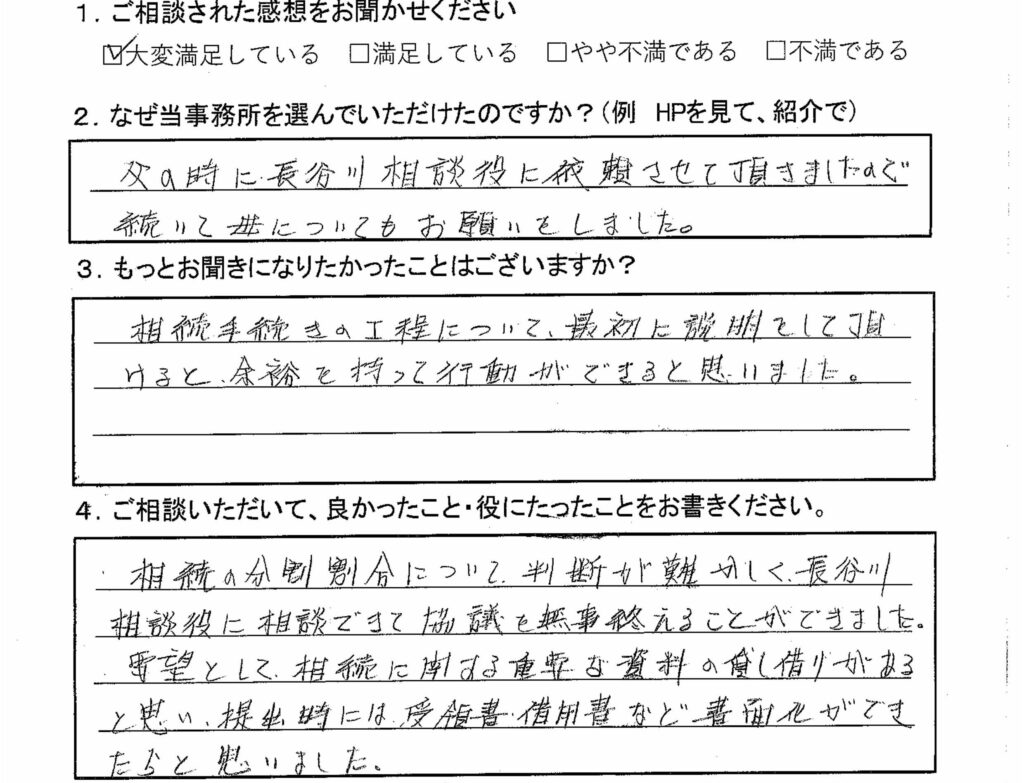 1. ご相談された感想をお聞かせください
☑大変満足している □満足している □やや不満である □不満である
2. なぜ当事務所を選んでいただけたのですか？(例 HPを見て、紹介で)
父の時に長谷川相談役に依頼させて頂きましたので
続いて母についてもお願いをしました。
3. もっとお聞きになりたかったことはございますか？
相続手続きの工程について、最初に説明をして頂
けると、余裕を持って行動ができると思いました。
4. ご相談いただいて、良かったこと・役にたったことをお書きください。
・相続の分割割合について、判断が難かしく、長谷川
相談役に相談できて協議も無事終えることができました。
要望として、相続に関する重要な資料の貸し借りがある
と思い、提出時には、受領書・借用書など書面化ができ
たらと思いました。